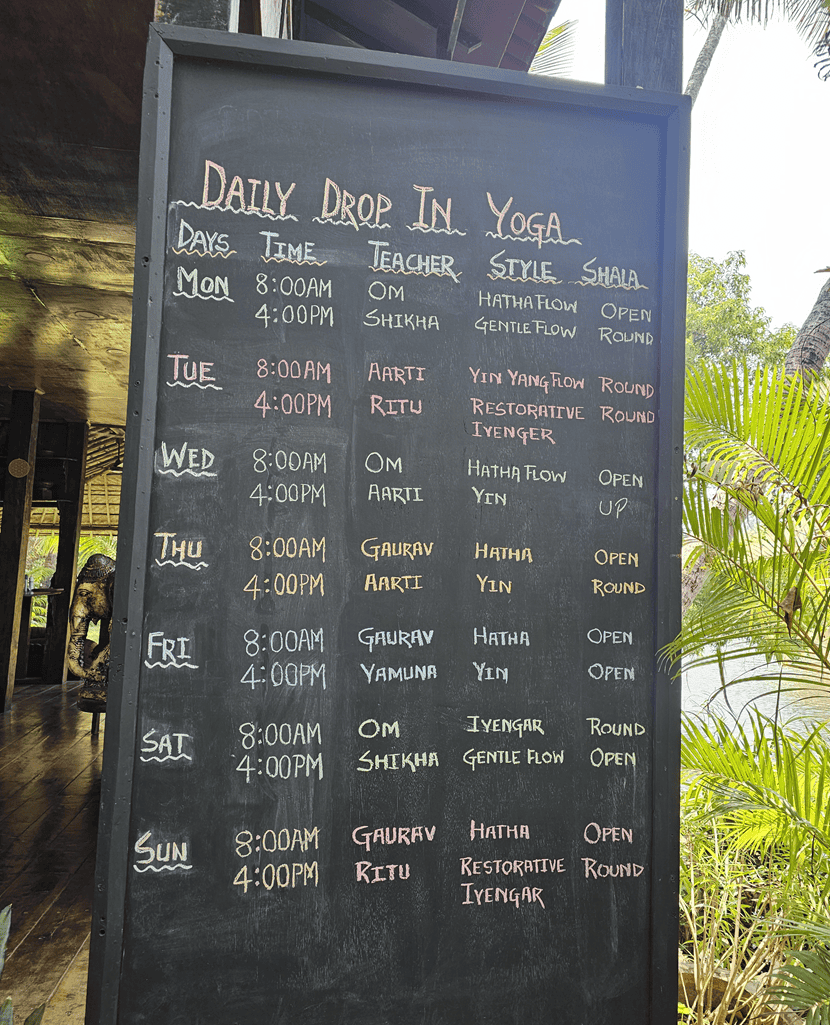 DAILY DROP IN YOGA
DAYS TIME TEACHER STYLE SHALA
MON 8:00AM OM HATHA FLOW OPEN
4:00PM SHIKHA GENTLE FLOW ROUND
TUE 8:00AM AARTI YIN YANG FLOW ROUND
4:00PM RITU RESTORATIVE ROUND
IYENGER
WED 8:00AM OM HATHA FLOW OPEN
4:00PM AARTI YIN UP
THU 8:00AM GAURAV HATHA OPEN
4:00PM AARTI YIN ROUND
FRI 8:00AM GAURAV HATHA OPEN
4:00PM YAMUNA YIN OPEN
SAT 8:00AM OM IYENGAR ROUND
4:00PM SHIKHA GENTLE FLOW OPEN
SUN 8:00AM GAURAV HATHA OPEN
4:00PM RITU RESTORATIVE ROUND
IYENGAR